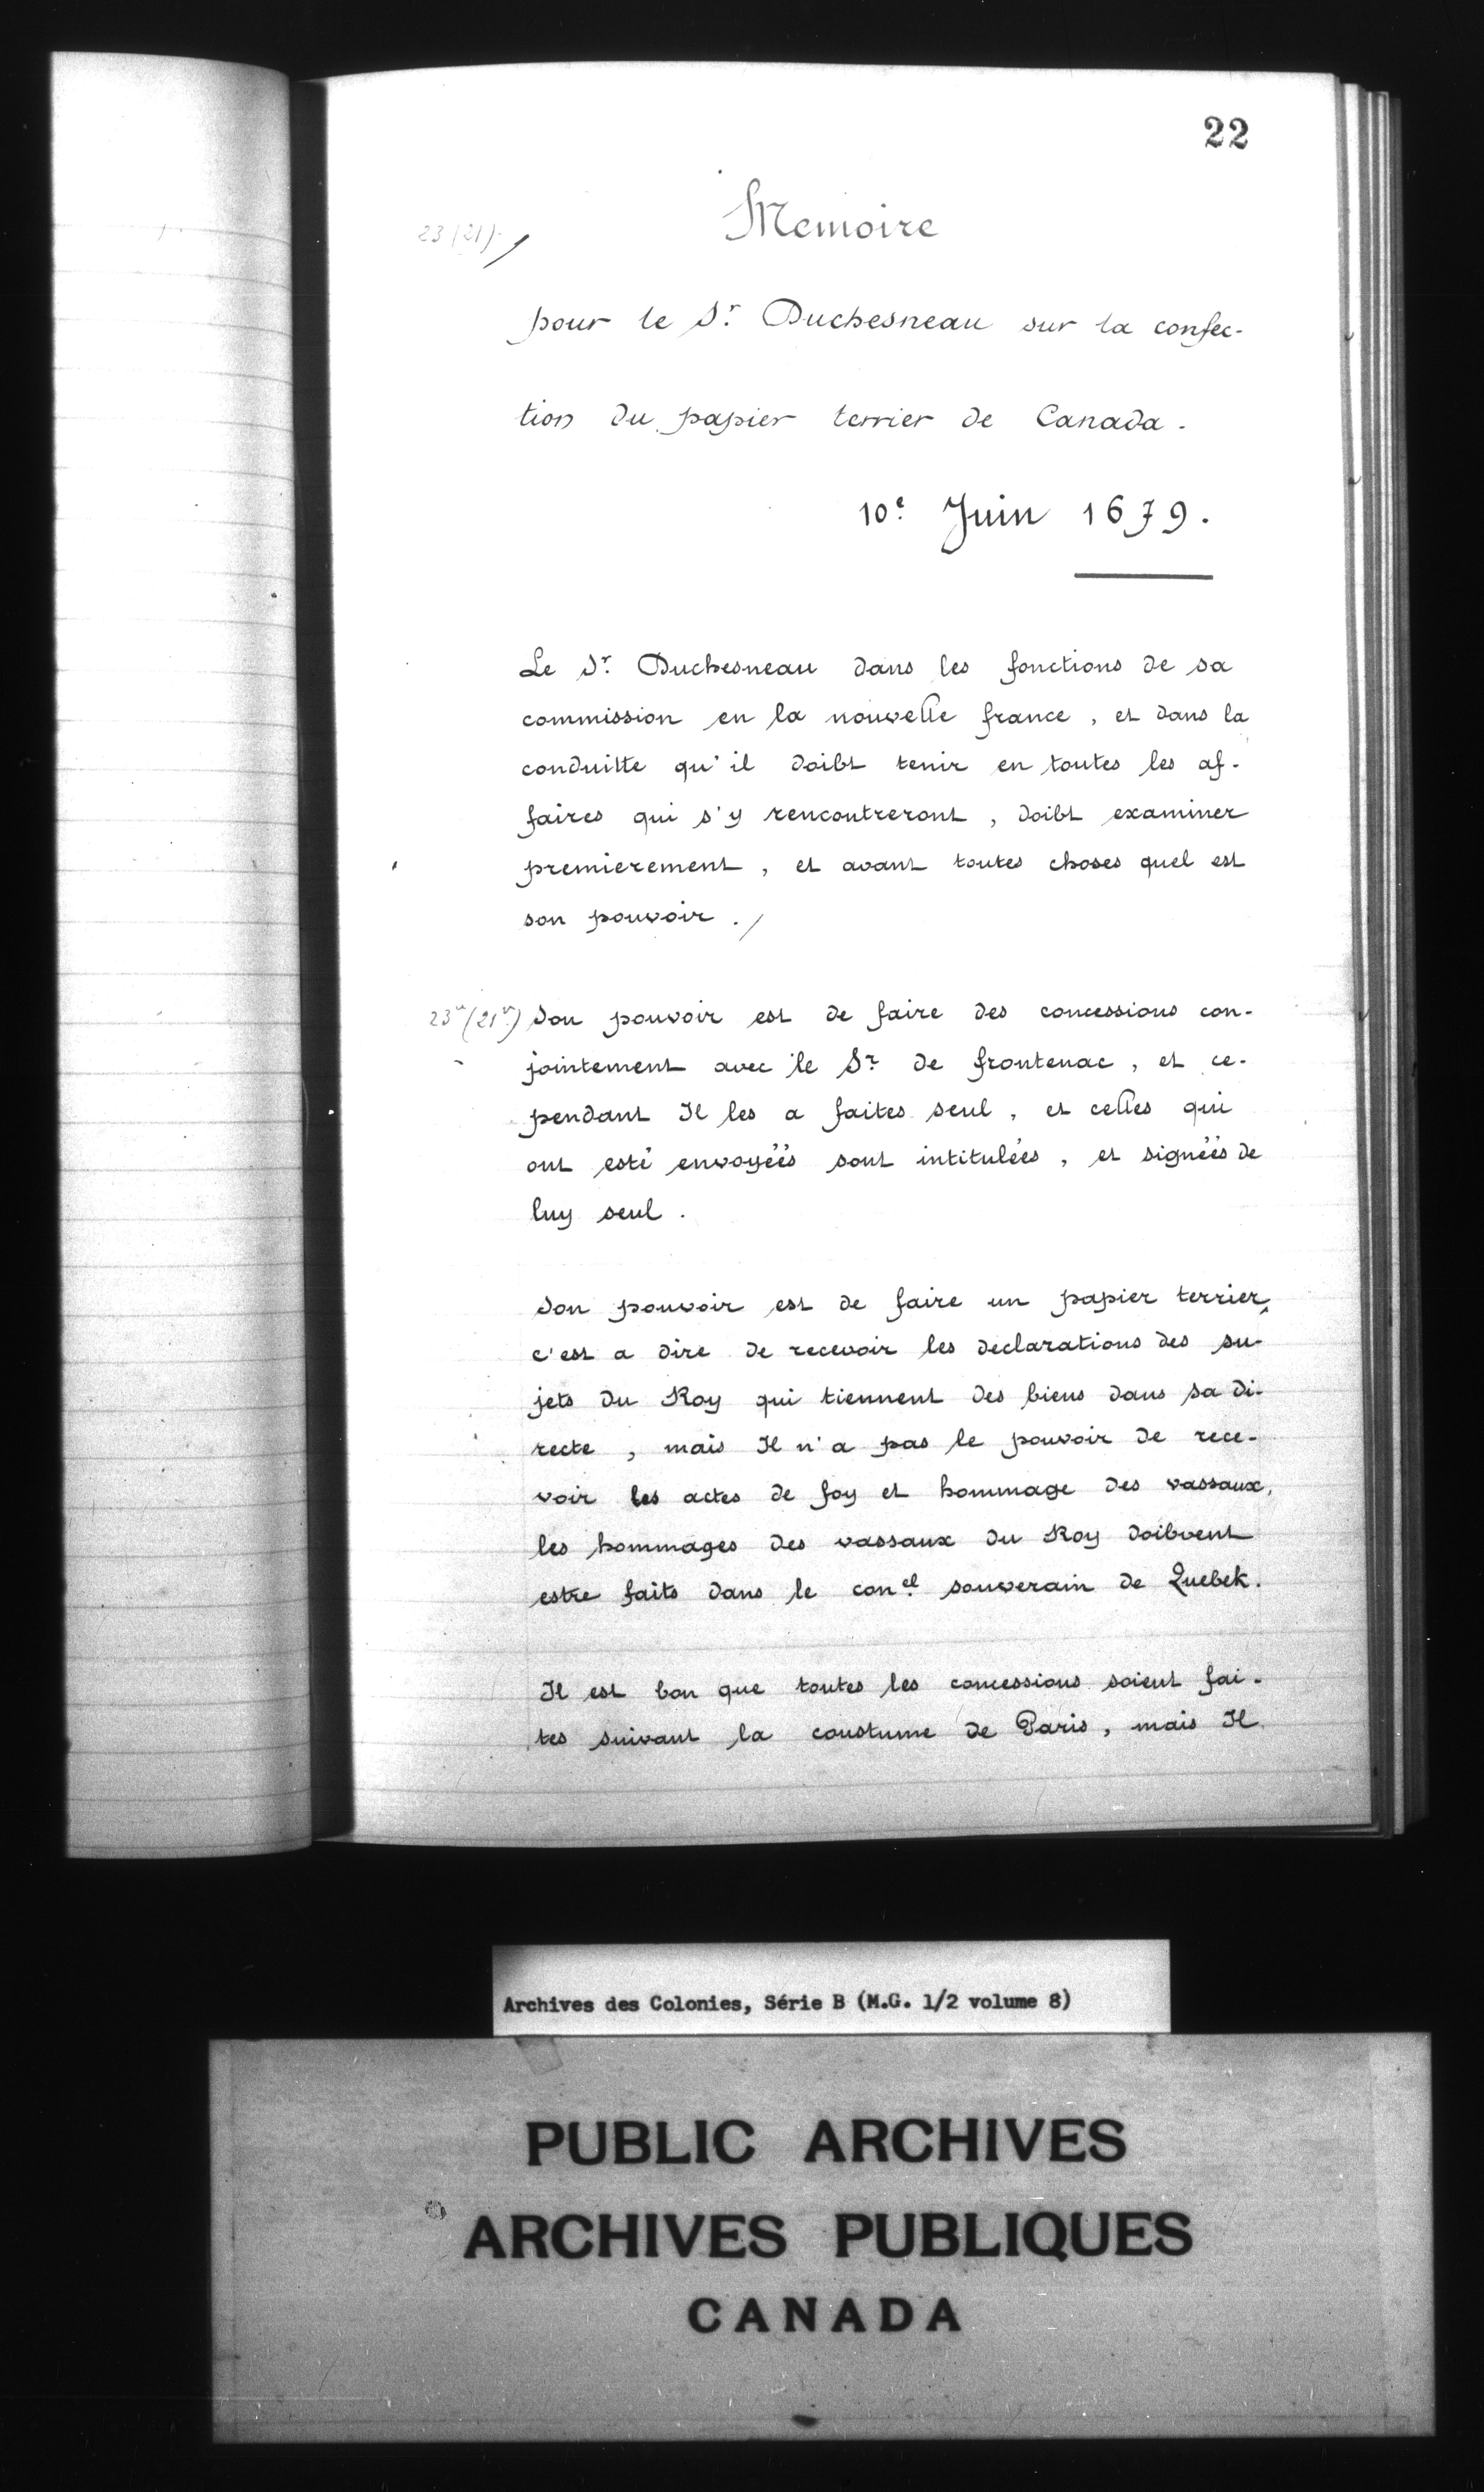 22
23 (21)
Memoire
pour le Sr. Duchesneau sur la confec-
tion du papier terrier de Canada.
10e. Juin 1679.
Le Sr. Duchesneau dans les fonctions de sa
commission en la nouvelle france, et dans la
conduitte qu'il doibt tenir en toutes les af-
faires qui s'y rencontreront, doibt examiner
premierement, et avant toutes choses quel est
son pouvoir./
23v (21v) Son pouvoir est de faire des concessions con-
jointement avec le Sr. de frontenac, et ce-
pendant Il les a faites seul, et celles qui
ont esté envoyéés sont intitulées, et signéés de
luy seul.
Son pouvoir est de faire un papier terrier,
c'est a dire de recevoir les declarations des su-
jets du Roy qui tiennent des biens dans sa di-
recte, mais Il n'a pas le pouvoir de rece-
voir les actes de foy et hommage des vassaux,
les hommages des vassaux du Roy doibvent
estre faits dans le conel. souverain de Quebek.
Il est bon que toutes les concessions soient fai-
tes suivant la coustume de Paris, mais Il
Archives des Colonies, Série B (M.G. 1/2 volume 8)
PUBLIC ARCHIVES
ARCHIVES PUBLIQUES
CANADA